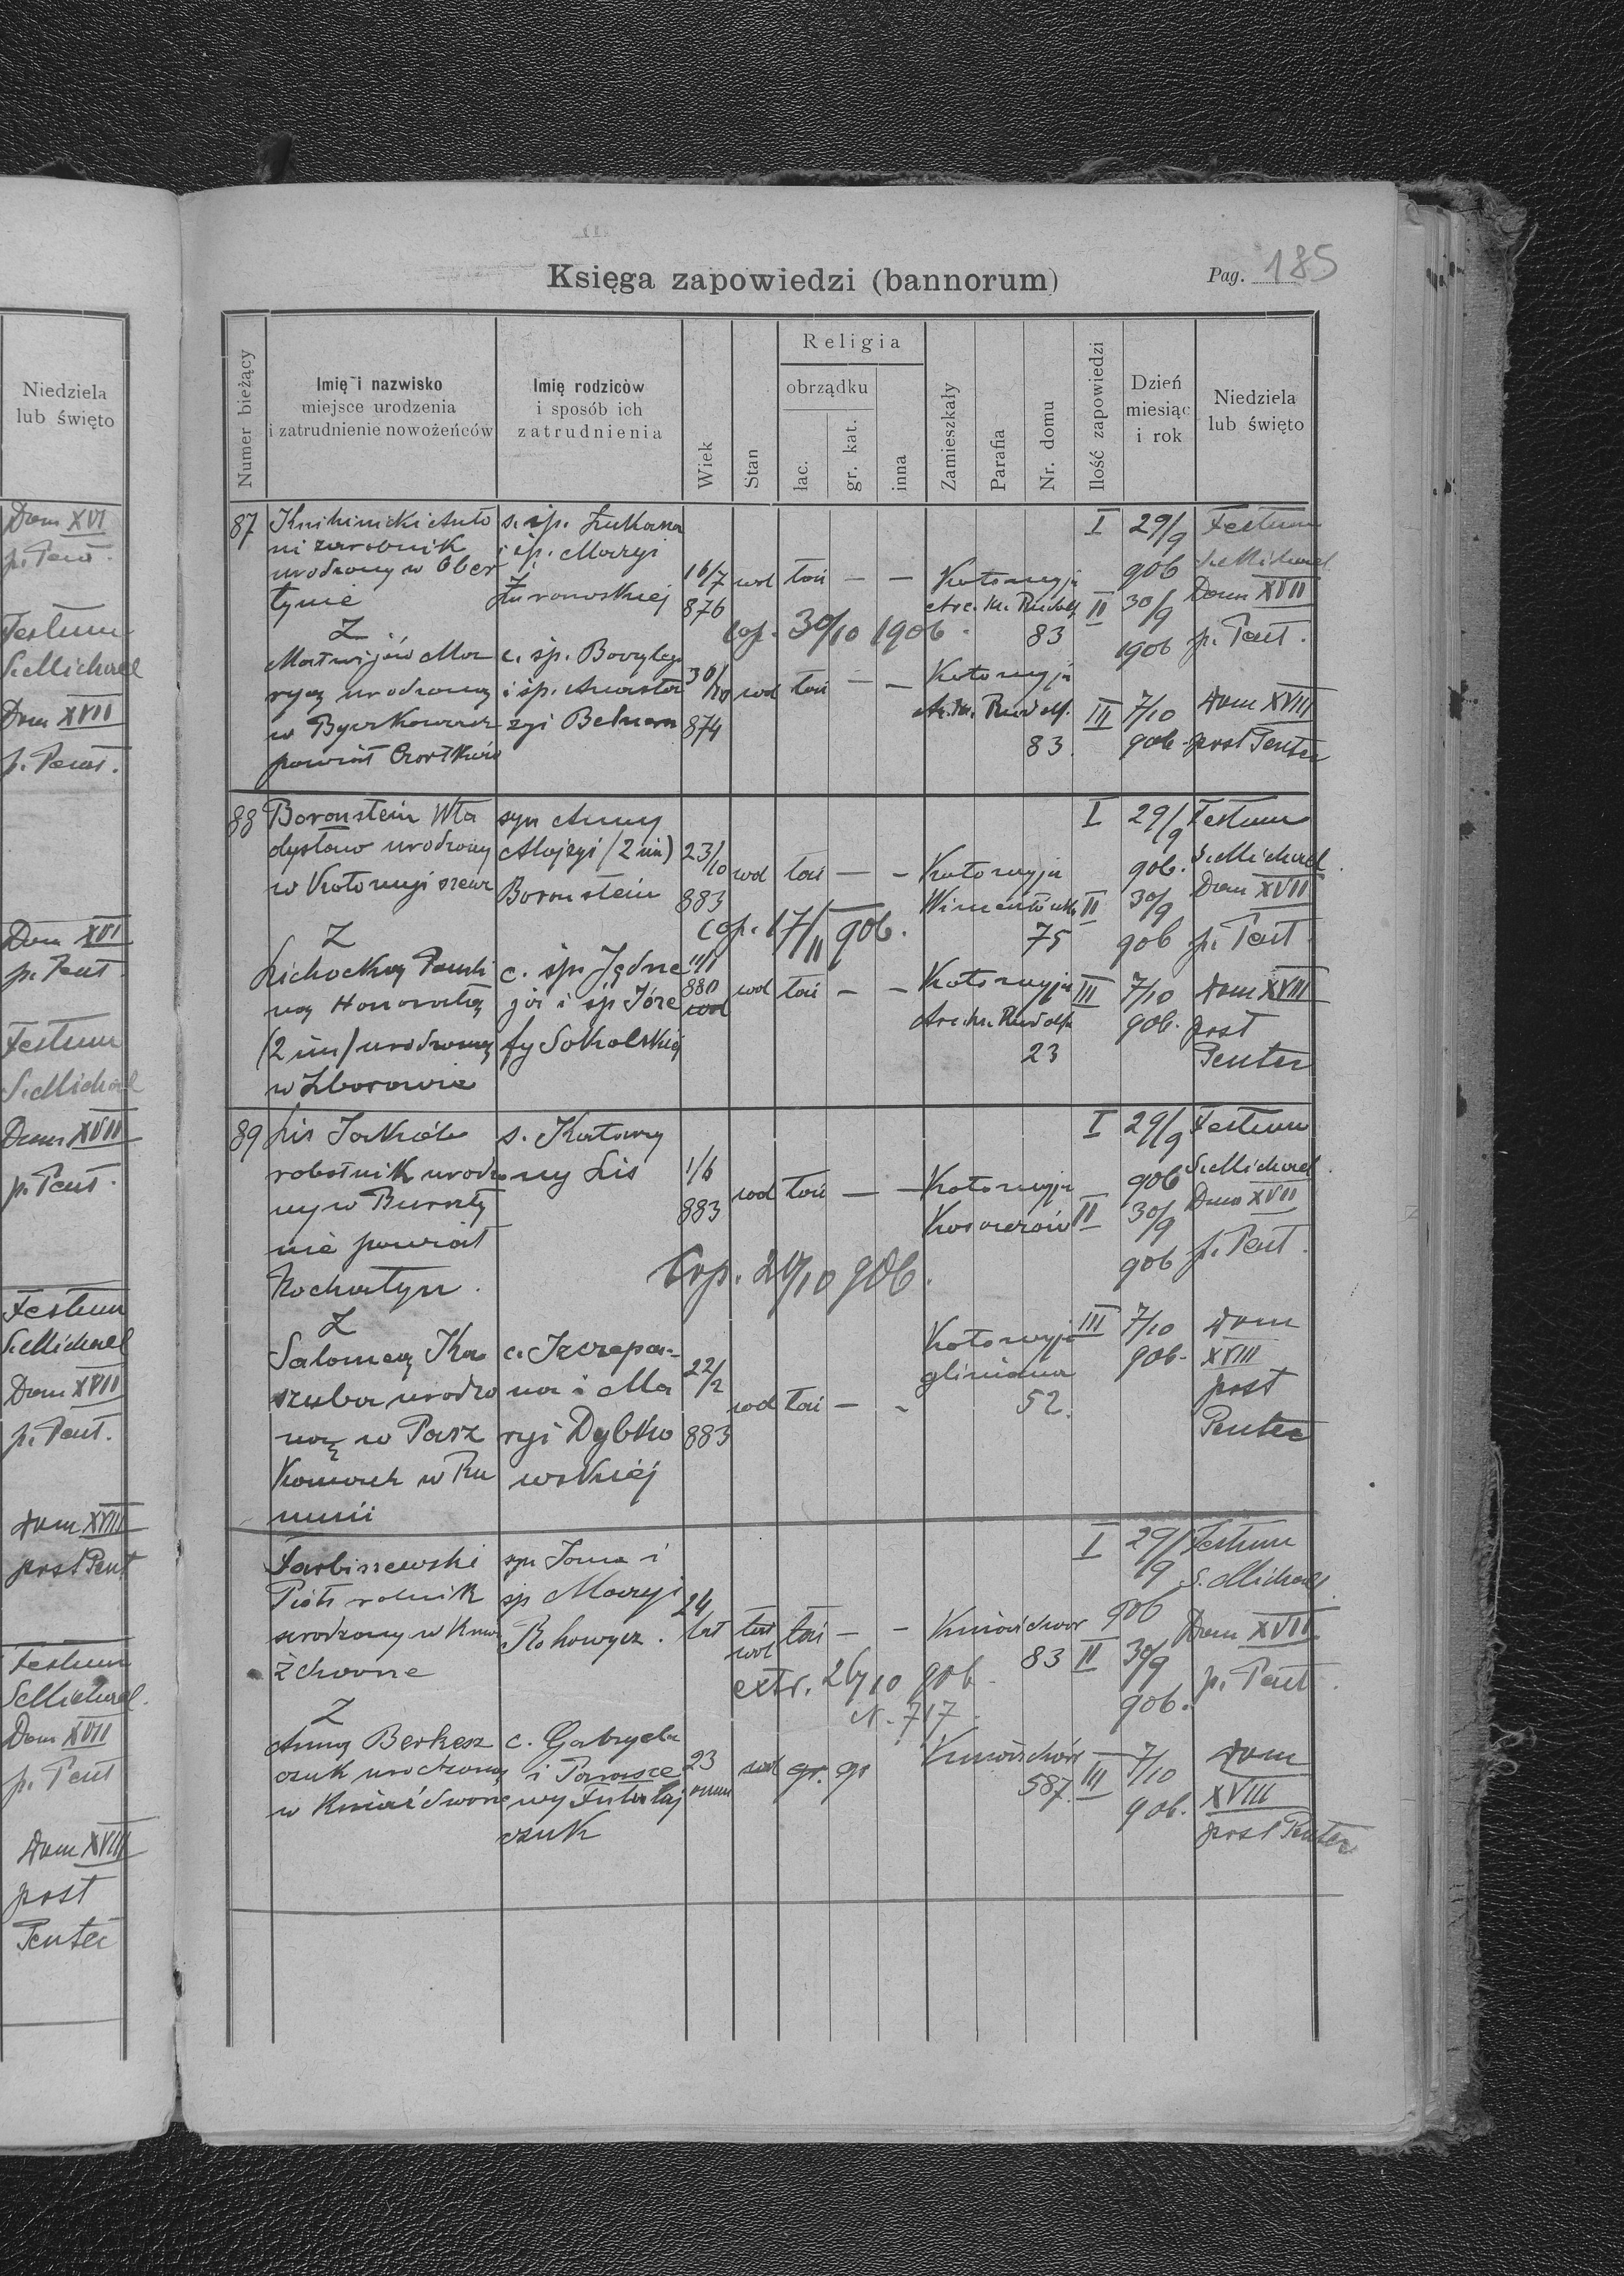 Niedziela
lub święto
Dom XVI
p. Pent.
Festum
S. Michael
Dom XVII
p. Pent.
Dom XVI
p. Pent.
Festum
S. Michael
Dom XVII
p. Pent.
Festum
S. Michael
Dom XVII
p. Pent.
Dom XVIII
post Pent
Festum
S. Michael.
Dom XVII
p. Pent
Dom XVIII
post
Pentec
Księga zapowiedzi (bannorum)
Pag. 185
Numer bieżący
Imię i nazwisko
miejsce urodzenia
i zatrudnienie nowożeńców
Imię rodziców
i sposób ich
zatrudnienia
Wiek
Stan
Religia
obrządku
łac.
gr. kat.
inna
Zamieszkały
Parafia
Nr. domu
Ilość zapowiedzi
Dzień
miesiąc
i rok
Niedziela
lub święto
87
Knihinicki Anto
ni zarobnik
urodzony w Ober
tynie
Z
Matwijów Ma
ryą urodzoną
w Byczkowcach
powiat Czortków
s. śp. Łukasza
i śp. Maryi
Żurowskiej
c. śp. Bazylego
i śp. Anasta
zyi
16/7
876
wol łać — —
Kołomyja
Arc. Ks. Rudolf
83
Cop. 30/10 1906.
30/10
874
wol łać — —
Kołomyja
Rudolf.
83.
I 29/9
906
II 30/9
1906
III 7/10
906.
Festum
S. Michael
Dom XVII
p. Pent.
Dom XVIII
post Pentec
88
Boronstein Wła
dysław urodzony
w Kołomyji szewc
Z
Lichocką Pauli
ną Honoratą
(2 im) urodzoną
w Zborowie
syn Anny
Alojzyi (2 im)
Boronstein
c. śp. Jędrze
ja i śp Józe
fy Sokolskiej
23/10
883
wol łać — —
Kołomyja
75
Cop. 17/11 906.
880
wol łać — —
Kołomyja
Rudolfa
23
I 29/9
906.
II 30/9
906
III 7/10
906.
Festum
S. Michael.
Dom XVII
p. Pent
Dom XVIII
post
Pentec
89
Lis Jakób
robotnik urodzo
ny w Burszty
nie powiat
Rochatyn.
Z
Salomeą Ka
szuba urodzo
ną w Pasz
kanach w Ru
munii
s. Katarzy
ny Lis
c. Szczepa-
na i Ma
ryi Dybko
wskiej
1/6
883
wol łać — —
Kołomyja
22/2
883
wol łać — -
Kołomyja
gliniana
52.
I 29/9
906
II 30/9
906
III 7/10
906.
Festum
S. Michael.
Dom XVII
p. Pent.
Dom
XVIII
post
Pentec
Farbiszewski
Piotr rolnik
urodzony w Knia
żdworze
Z
Anną Berkesz
czuk urodzoną
w Kniaźdworze
syn Jana i
śp Maryi
Rohowycz.
c. Gabryela
i Parasce
wy
czuk
24
lat
wol
łać — —
Kniaźdwor
83
extr. 26/10 906.
N. 717.
23
wol gr. gr
Kniaźdwór
587.
I 29/9
906
II 30/9
906.
III 7/10
906.
Festum
S. Michael.
Dom XVII
p. Pent.
Dom
XVIII
post Pentec